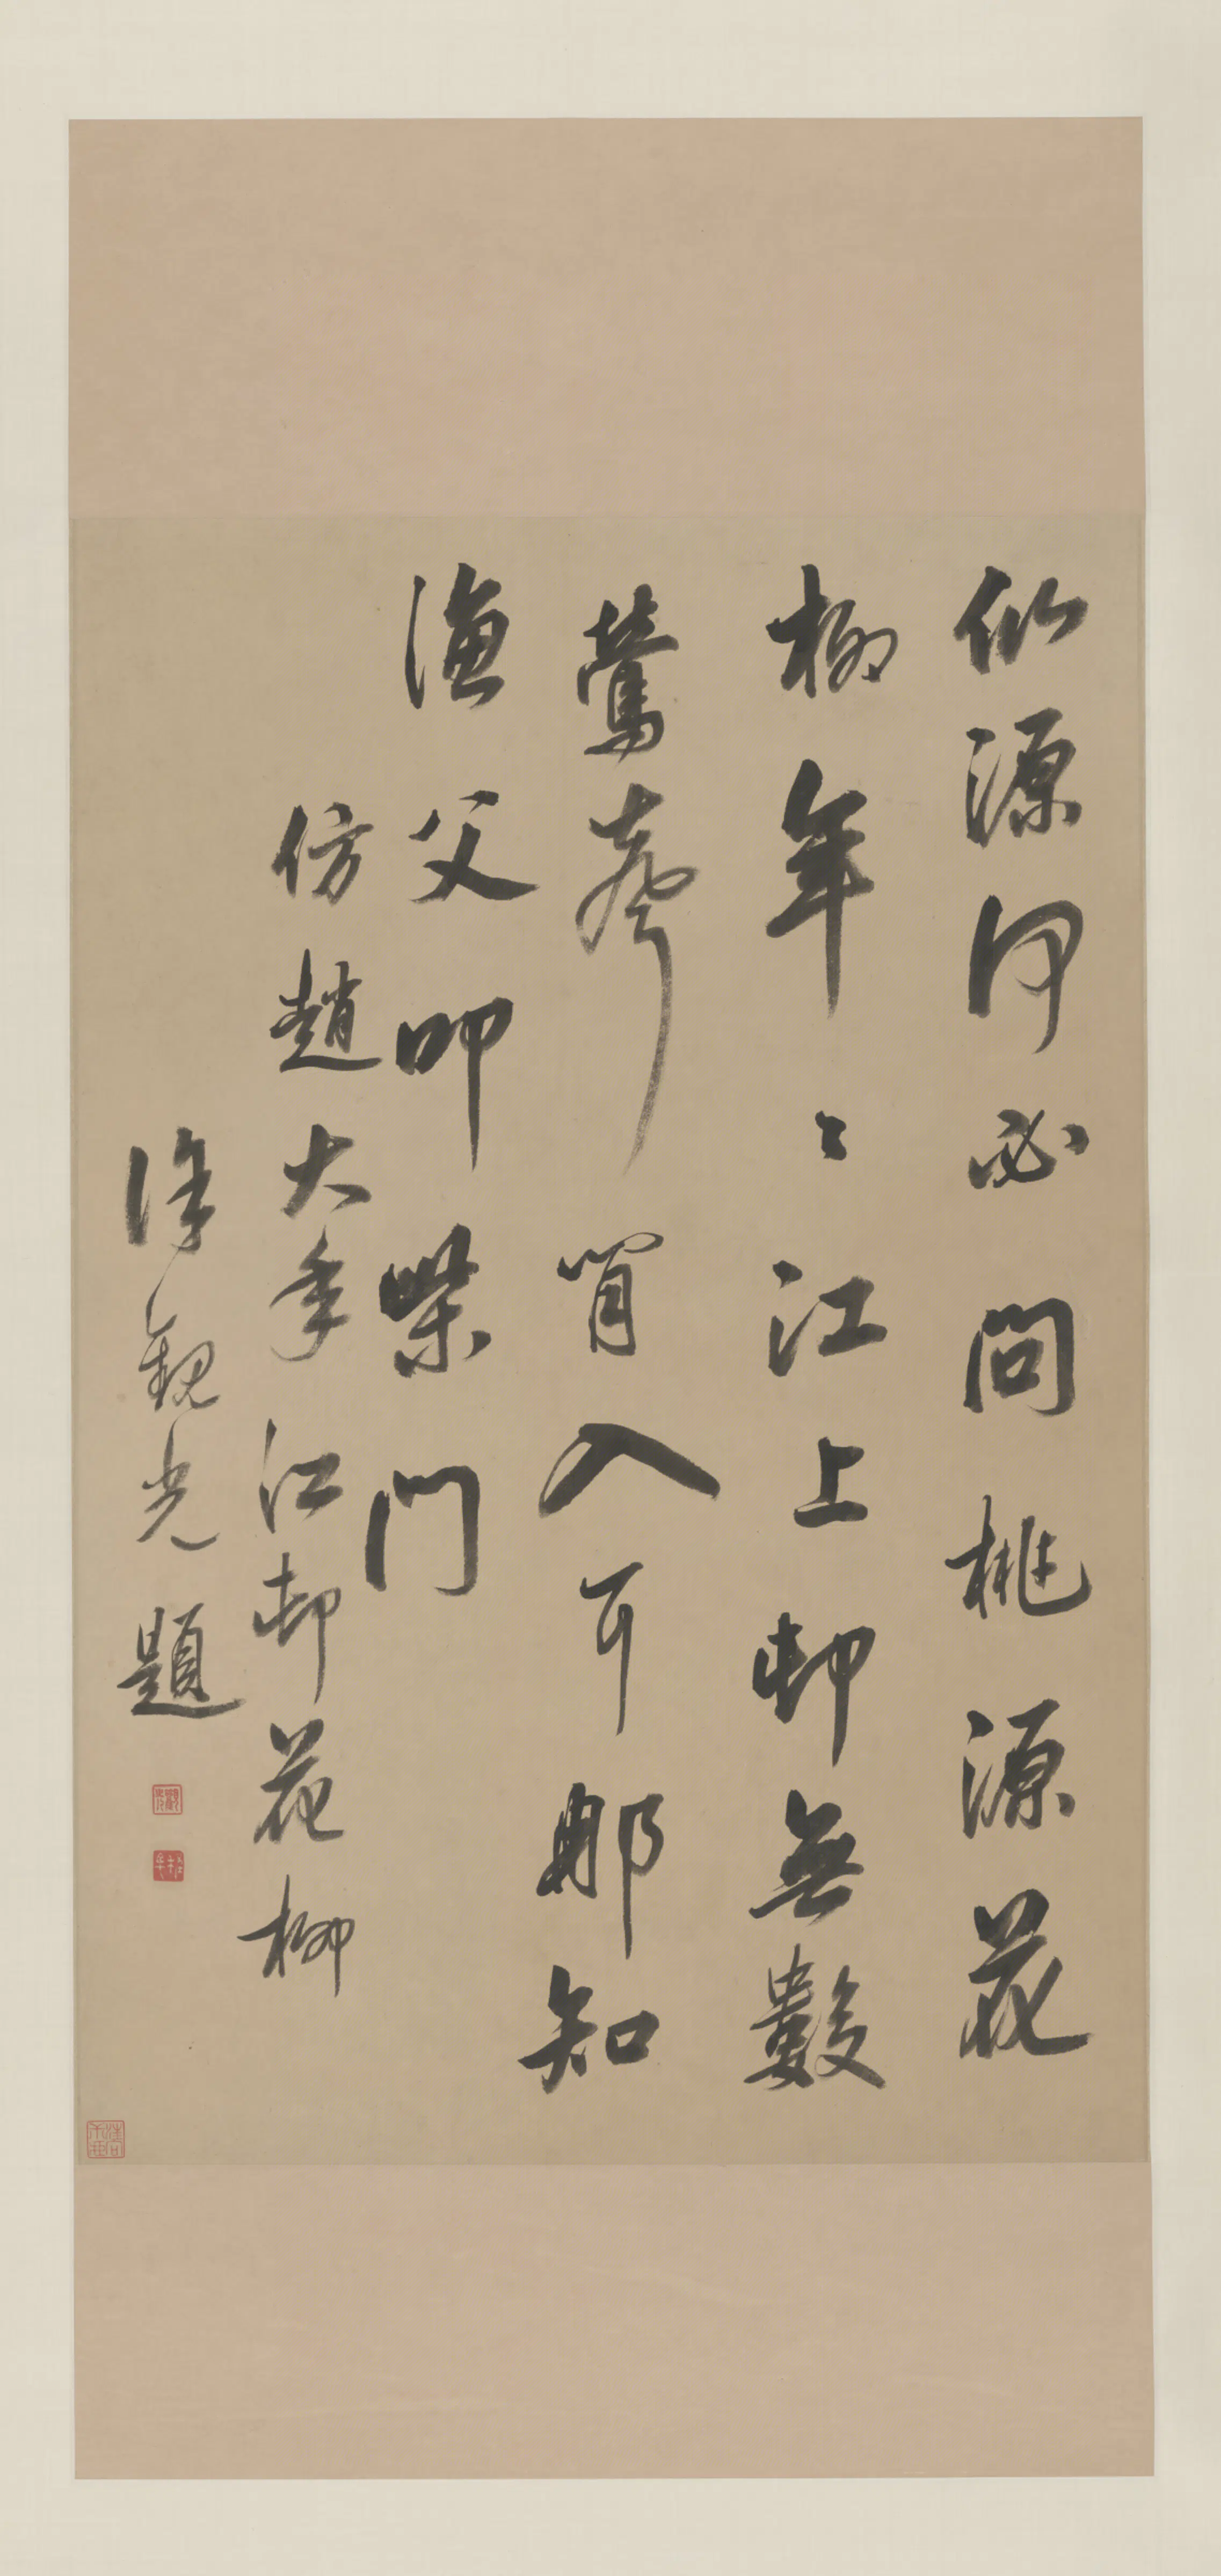 仙源何必問桃源花
柳年々江上邨無數
鶯聲入耳那知
漁父叩柴門
仿趙大年江邨花柳
徐觀光題